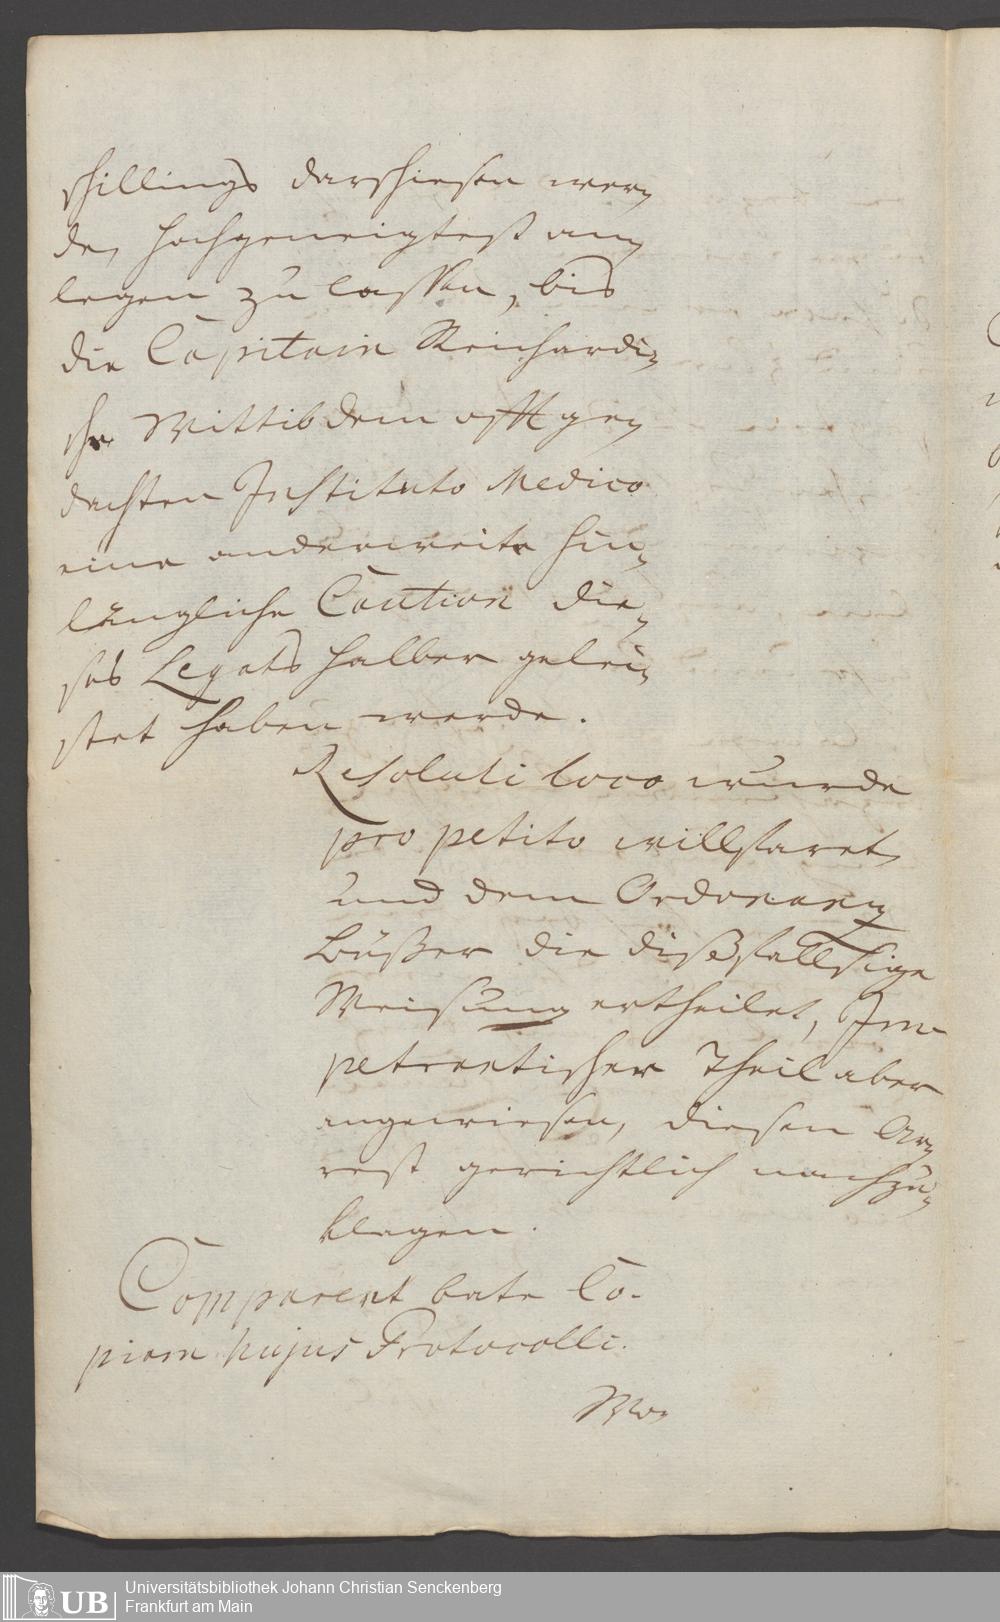 schillings darschiesen wer-
de, hochgeneigtest an-
legen zu lassen, bis
die Capitain Reichardi-
sche Wittib dem offtge-
dachten Instituto Medico
eine anderweite hin-
längliche Caution die-
ses Legats halber gelei-
stet haben werde.
Resoluti loco wurde
pro petito willfaret
und dem Ordonanz
Büßer die dißfallsige
Weisung ertheilet, Im-
petrantischer Theil aber
angewiesen, diesen Ar-
rest gerichtlich nachzu-
klagen.
Comparent bate Co-
piam hujus Protocolli.
Universitätsbibliothek Johann Christian Senckenberg
Frankfurt am Main
UB